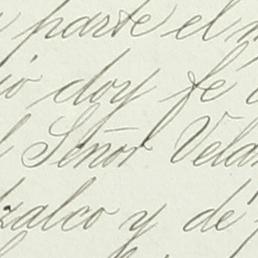 y parte el
io doy fé
l Señor Vela
zalco y de